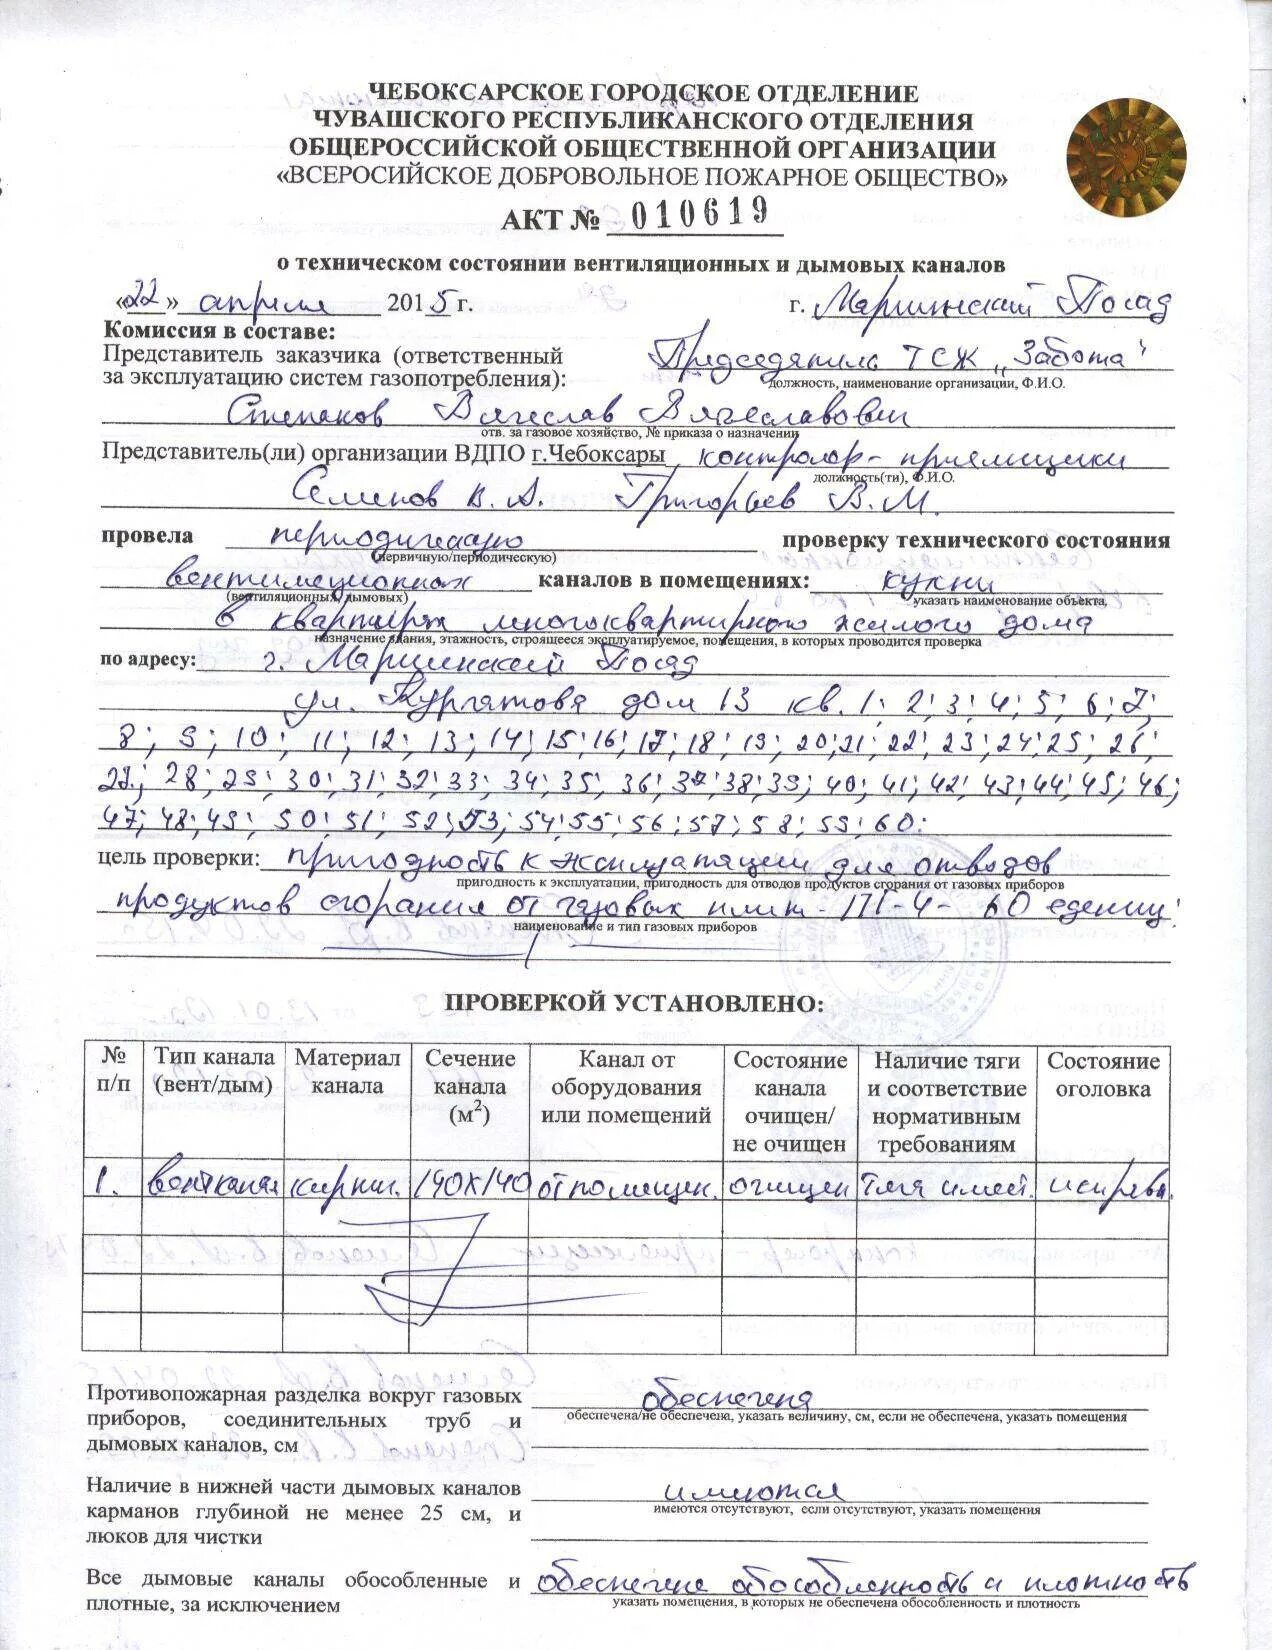 ЧЕБОКСАРСКОЕ ГОРОДСКОЕ ОТДЕЛЕНИЕ
ЧУВАШСКОГО РЕСПУБЛИКАНСКОГО ОТДЕЛЕНИЯ
ОБЩЕРОССИЙСКОЙ ОБЩЕСТВЕННОЙ ОРГАНИЗАЦИИ
«ВСЕРОСИЙСКОЕ ДОБРОВОЛЬНОЕ ПОЖАРНОЕ ОБЩЕСТВО»
АКТ № 010619
о техническом состоянии вентиляционных и дымовых каналов
«22» апреля 2015 г. г. Мариинский Посад
Комиссия в составе:
Представитель заказчика (ответственный
за эксплуатацию систем газопотребления): Председатель ТСЖ „Забота"
должность, наименование организации, Ф.И.О.
Степанов Вячеслав Вячеславович
отв. за газовое хозяйство, № приказа о назначении
Представитель(ли) организации ВДПО г.Чебоксары контролер-приемщики
должность(ти), Ф.И.О.
Семенов В.А. Григорьев В.М.
провела периодическую проверку технического состояния
(первичную/периодическую)
вентиляционных каналов в помещениях: кухни
(вентиляционных, дымовых) указать наименование объекта,
в квартирах многоквартирного жилого дома
назначение здания, этажность, строящееся эксплуатируемое, помещения, в которых проводится проверка
по адресу: г. Мариинский Посад
ул. Курчатова дом 13 кв. 1; 2; 3; 4; 5; 6; 7;
8; 9; 10; 11; 12; 13; 14; 15; 16; 17; 18; 19; 20; 21; 22; 23; 24; 25; 26;
27; 28; 29; 30; 31; 32; 33; 34; 35; 36; 37; 38; 39; 40; 41; 42; 43; 44; 45; 46;
47; 48; 49; 50; 51; 52; 53; 54; 55; 56; 57; 58; 59; 60:
цель проверки: пригодность к эксплуатации для отводов
пригодность к эксплуатации, пригодность для отводов продуктов сгорания от газовых приборов
продуктов сгорания от газовых плит - ПГ-4 - 60 едениц
наименование и тип газовых приборов
ПРОВЕРКОЙ УСТАНОВЛЕНО:
№ п/п Тип канала (вент/дым) Материал канала Сечение канала (м²) Канал от оборудования или помещений Состояние канала очищен/ не очищен Наличие тяги и соответствие нормативным требованиям Состояние оголовка
1. вентканал кирпич. 140х140 от помещен. очищен тяга имеет.
Противопожарная разделка вокруг газовых
приборов, соединительных труб и
дымовых каналов, см
обеспечена
обеспечена/не обеспечена, указать величину, см, если не обеспечена, указать помещения
Наличие в нижней части дымовых каналов
карманов глубиной не менее 25 см, и
люков для чистки
имеются
имеются отсутствуют, если отсутствуют, указать помещения
Все дымовые каналы обособленные и
плотные, за исключением
обеспечена обособленность и плотность
указать помещения, в которых не обеспечена обособленность и плотность